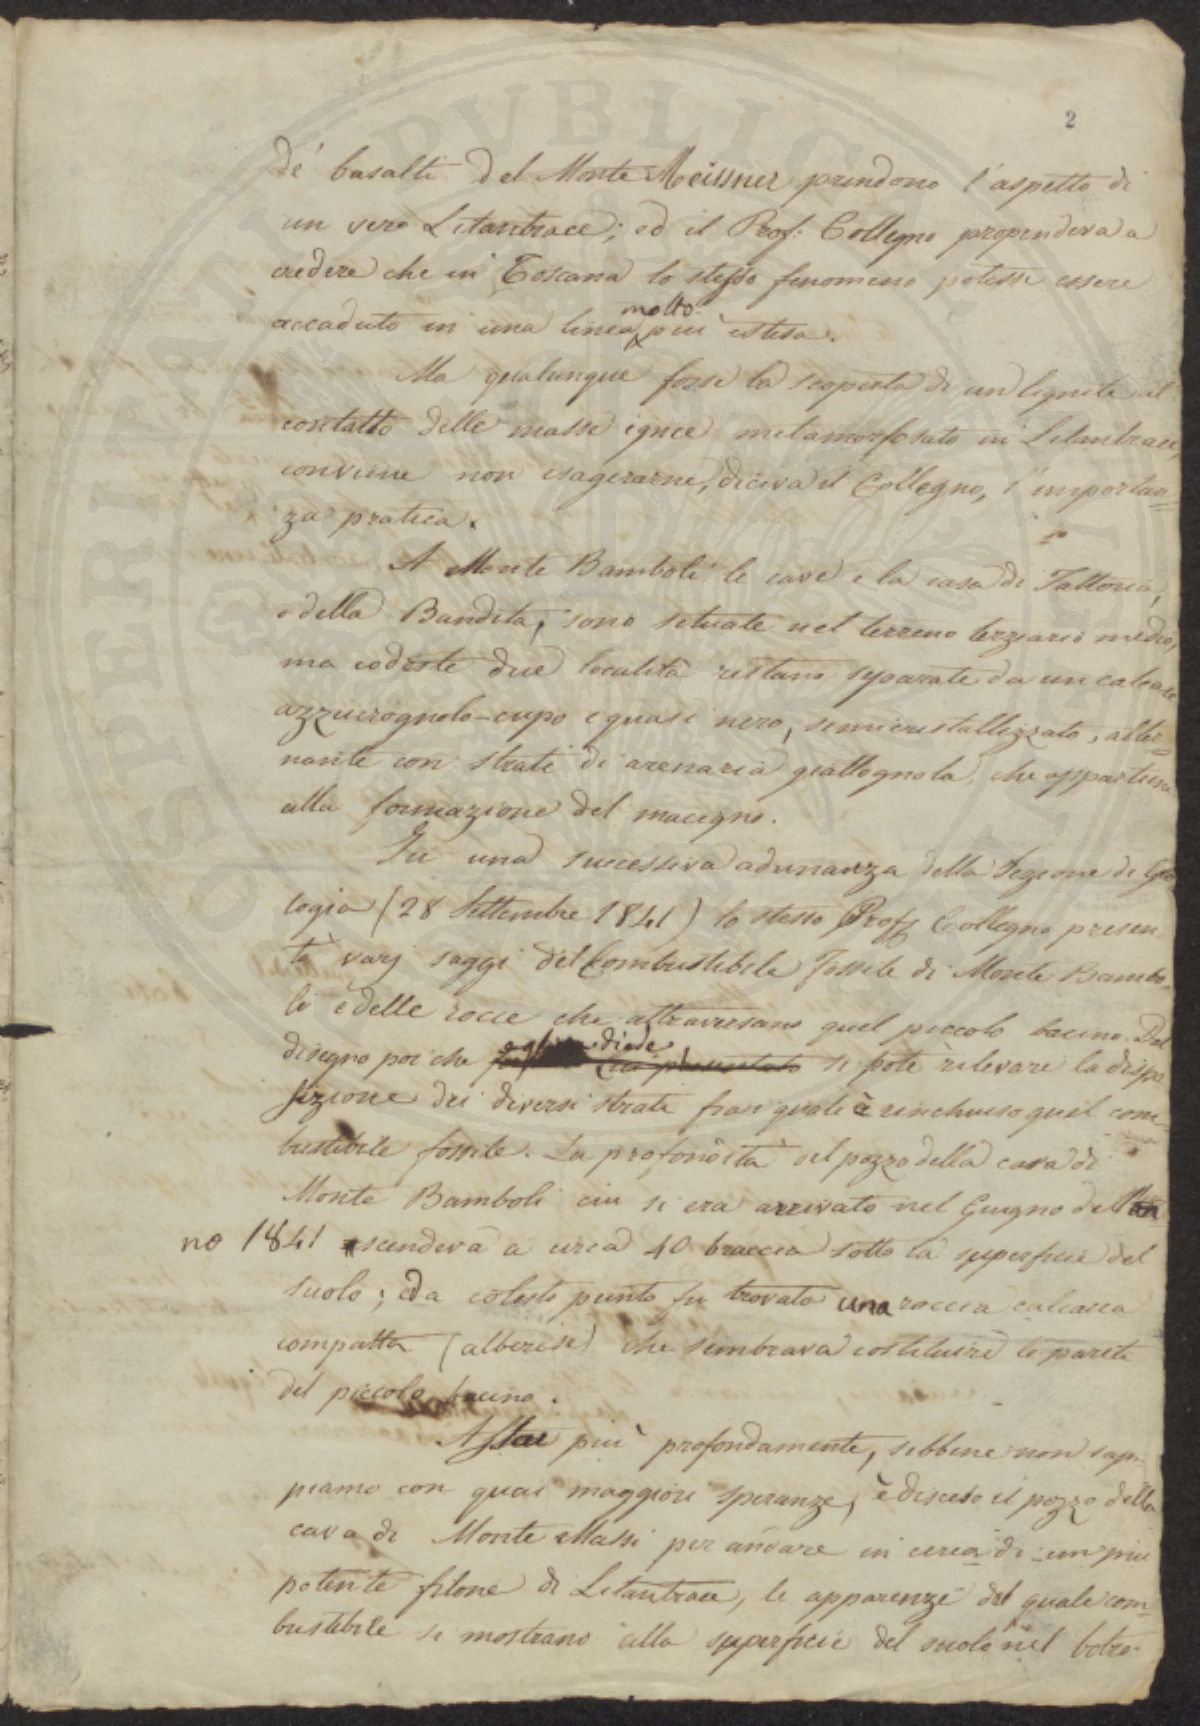 2
de' basalti del Monte Meissner prendono l'aspetto di
un vero Litantrace; ed il Prof. Collegno propendeva a
credere che in Toscana lo stesso fenomeno potesse essere
accaduto in una linea molto più estesa.
Ma qualunque fosse la scoperta di un lignite al
contatto delle masse ignee metamorfosato in Litantrace,
conviene non esagerarne, diceva il Collegno, l'importan-
za pratica.
A Monte Bamboli le cave e la casa di Fattoria,
o della Bandita, sono situate nel terreno terziario medio,
ma codeste due località restano separate da un calcare
azzurrognolo-cupo e quasi nero, semicristallizzato, alter-
nante con strati di arenaria giallognola, che appartiene
alla formazione del macigno.
In una successiva adunanza della Sezione di Geo
logia (28 Settembre 1841) lo stesso Prof. Collegno presen-
tò varj saggi del Combustibile Fossile di Monte Bambo-
li e delle rocce che attraversano quel piccolo bacino. Dal
disegno poi che egli diede si potè rilevare la dispo
sizione dei diversi strati frai quali è rinchiuso quel com
bustibile fossile. La profondità del pozzo della cava di
Monte Bamboli cui si era arrivato nel Giugno dell'an
no 1841 scendeva a circa 40 braccia sotto la superficie del
suolo; da cotesto punto fu trovato una roccia calcarea
compatta (alberese) che sembrava costituire le pareti
del piccolo bacino.
Assai più profondamente, sebbene non sap-
piamo con quai maggiori speranze, è disceso il pozzo della
cava di Monte Massi per andare in cerca di un più
potente filone di Litantrace, le apparenze del quale com-
bustibile si mostrano alla superficie del suolo nel botro